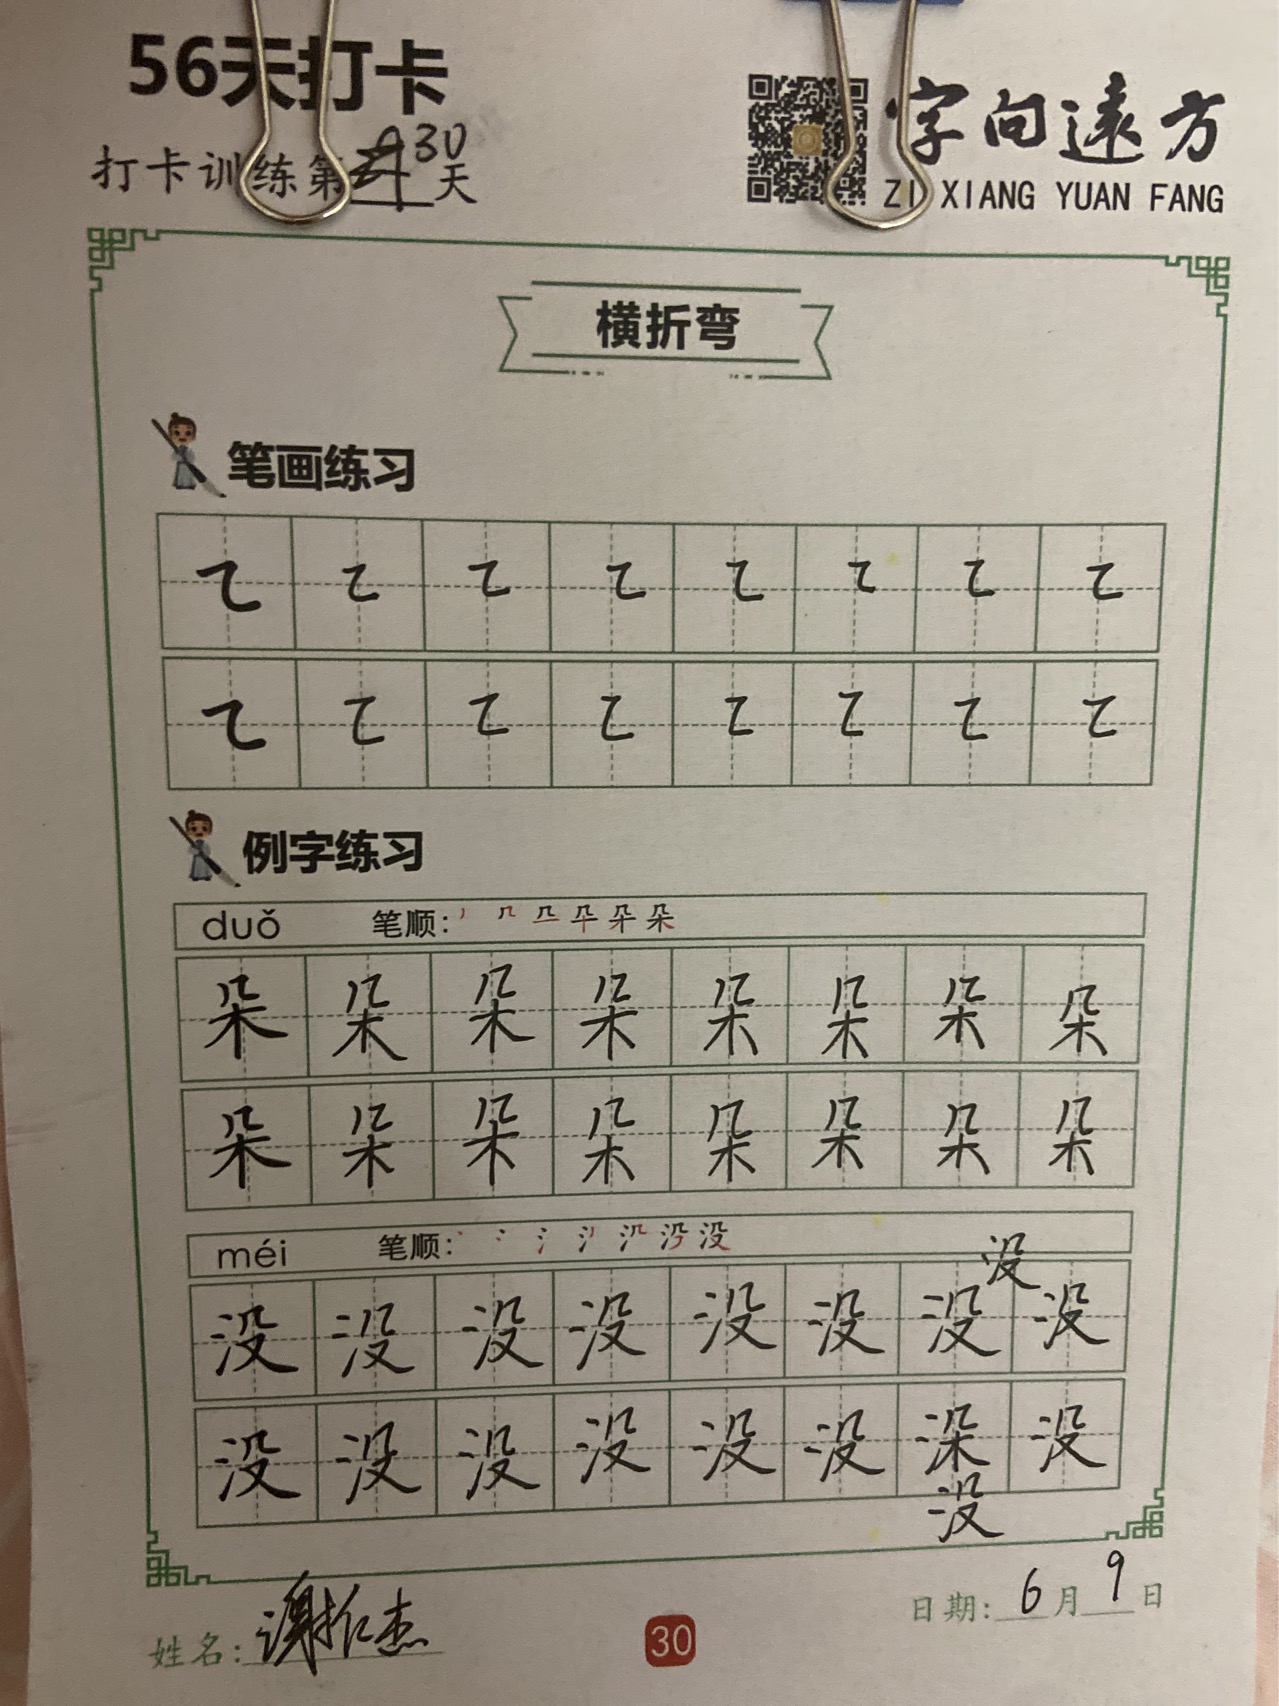 56天打卡
字向遠方
打卡训练第30天
ZI XIANG YUAN FANG
横折弯
笔画练习
㇍ ㇍ ㇍ ㇍ ㇍ ㇍ ㇍ ㇍
㇍ ㇍ ㇍ ㇍ ㇍ ㇍ ㇍ ㇍
例字练习
duǒ 笔顺:
朵 朵 朵 朵 朵 朵 朵 朵
朵 朵 朵 朵 朵 朵 朵 朵
méi 笔顺:
没
没 没 没 没 没 没 没 没
没 没 没 没 没 没 朵 没
没
姓名:
日期: 6月9日
30